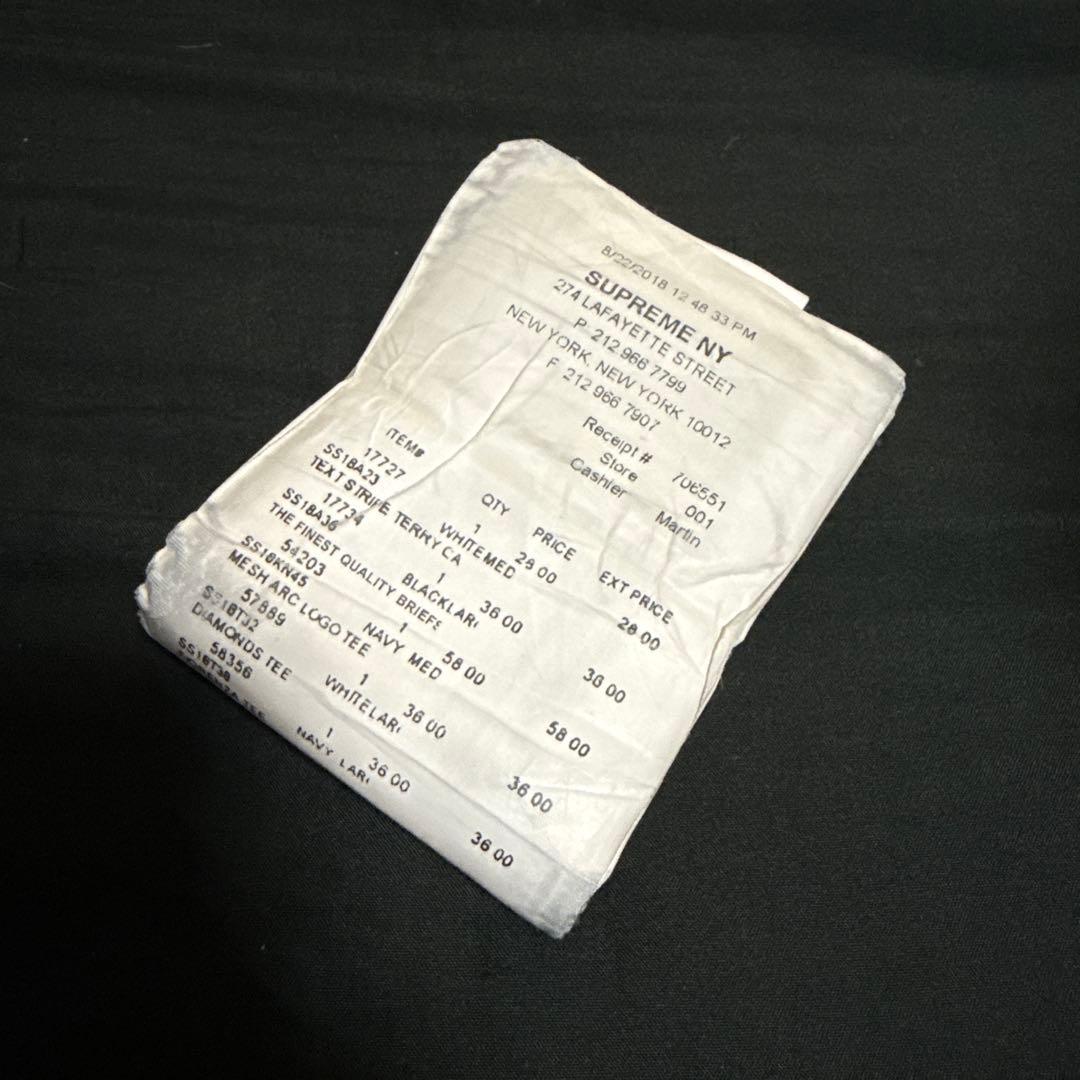 8/22/2018 12 48 33 PM
SUPREME NY
274 LAFAYETTE STREET
P 212 966 7799
NEW YORK, NEW YORK 10012
F 212 966 7907
Receipt # 706551
Store 001
Cashier Martin
ITEM# QTY PRICE EXT PRICE
17727 1 28 00 28 00
SS18A23 WHITE MED
TEXT STRIPE TERRY CA
17734 1 36 00 36 00
SS18A36 BLACK LAR
THE FINEST QUALITY BRIEFS
54203 1 58 00 58 00
SS18KN45 NAVY MED
MESH ARC LOGO TEE
57889 1 36 00 36 00
SS18T32 WHITE LAR
DIAMONDS TEE
58356 1 36 00 36 00
SS18T38 NAVY LAR
TEE